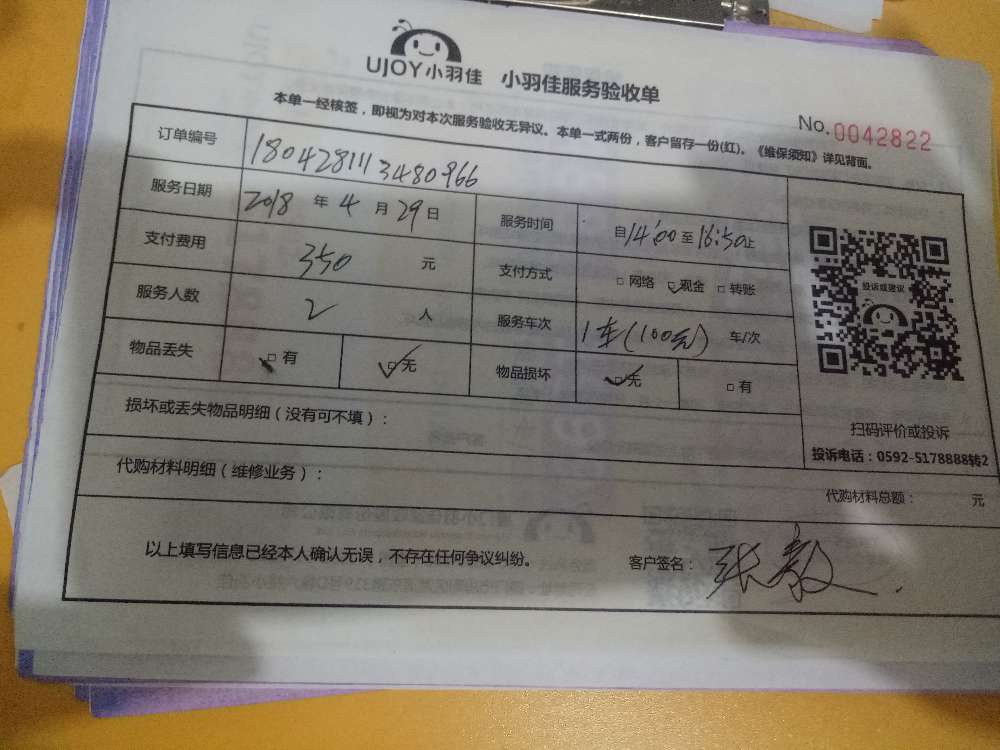 UJOY小羽佳 小羽佳服务验收单
本单一经核签，即视为对本次服务验收无异议。本单一式两份，客户留存一份(红)。《维保须知》详见背面。
No.0042822
订单编号 1804281113480966
服务日期 2018 年 4 月 29 日 服务时间 自14:00至16:50止
支付费用 350 元 支付方式 □网络 ☑现金 □转账
服务人数 2 人 服务车次 1车(100元) 车/次
物品丢失 □有 ☑无 物品损坏 ☑无 □有
投诉或建议
扫码评价或投诉
投诉电话：0592-5178888转2
损坏或丢失物品明细（没有可不填）：
代购材料明细（维修业务）：
代购材料总额： 元
以上填写信息已经本人确认无误，不存在任何争议纠纷。 客户签名：张毅